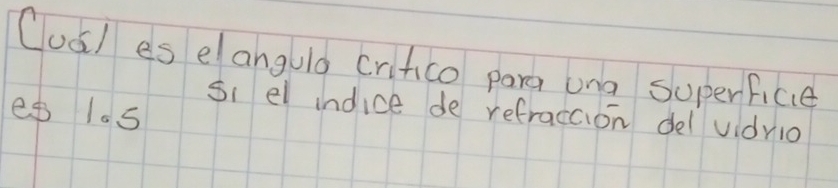 Cuál es el angulo critico para una superficie
si el indice de refracción del vidrio
es 1.5